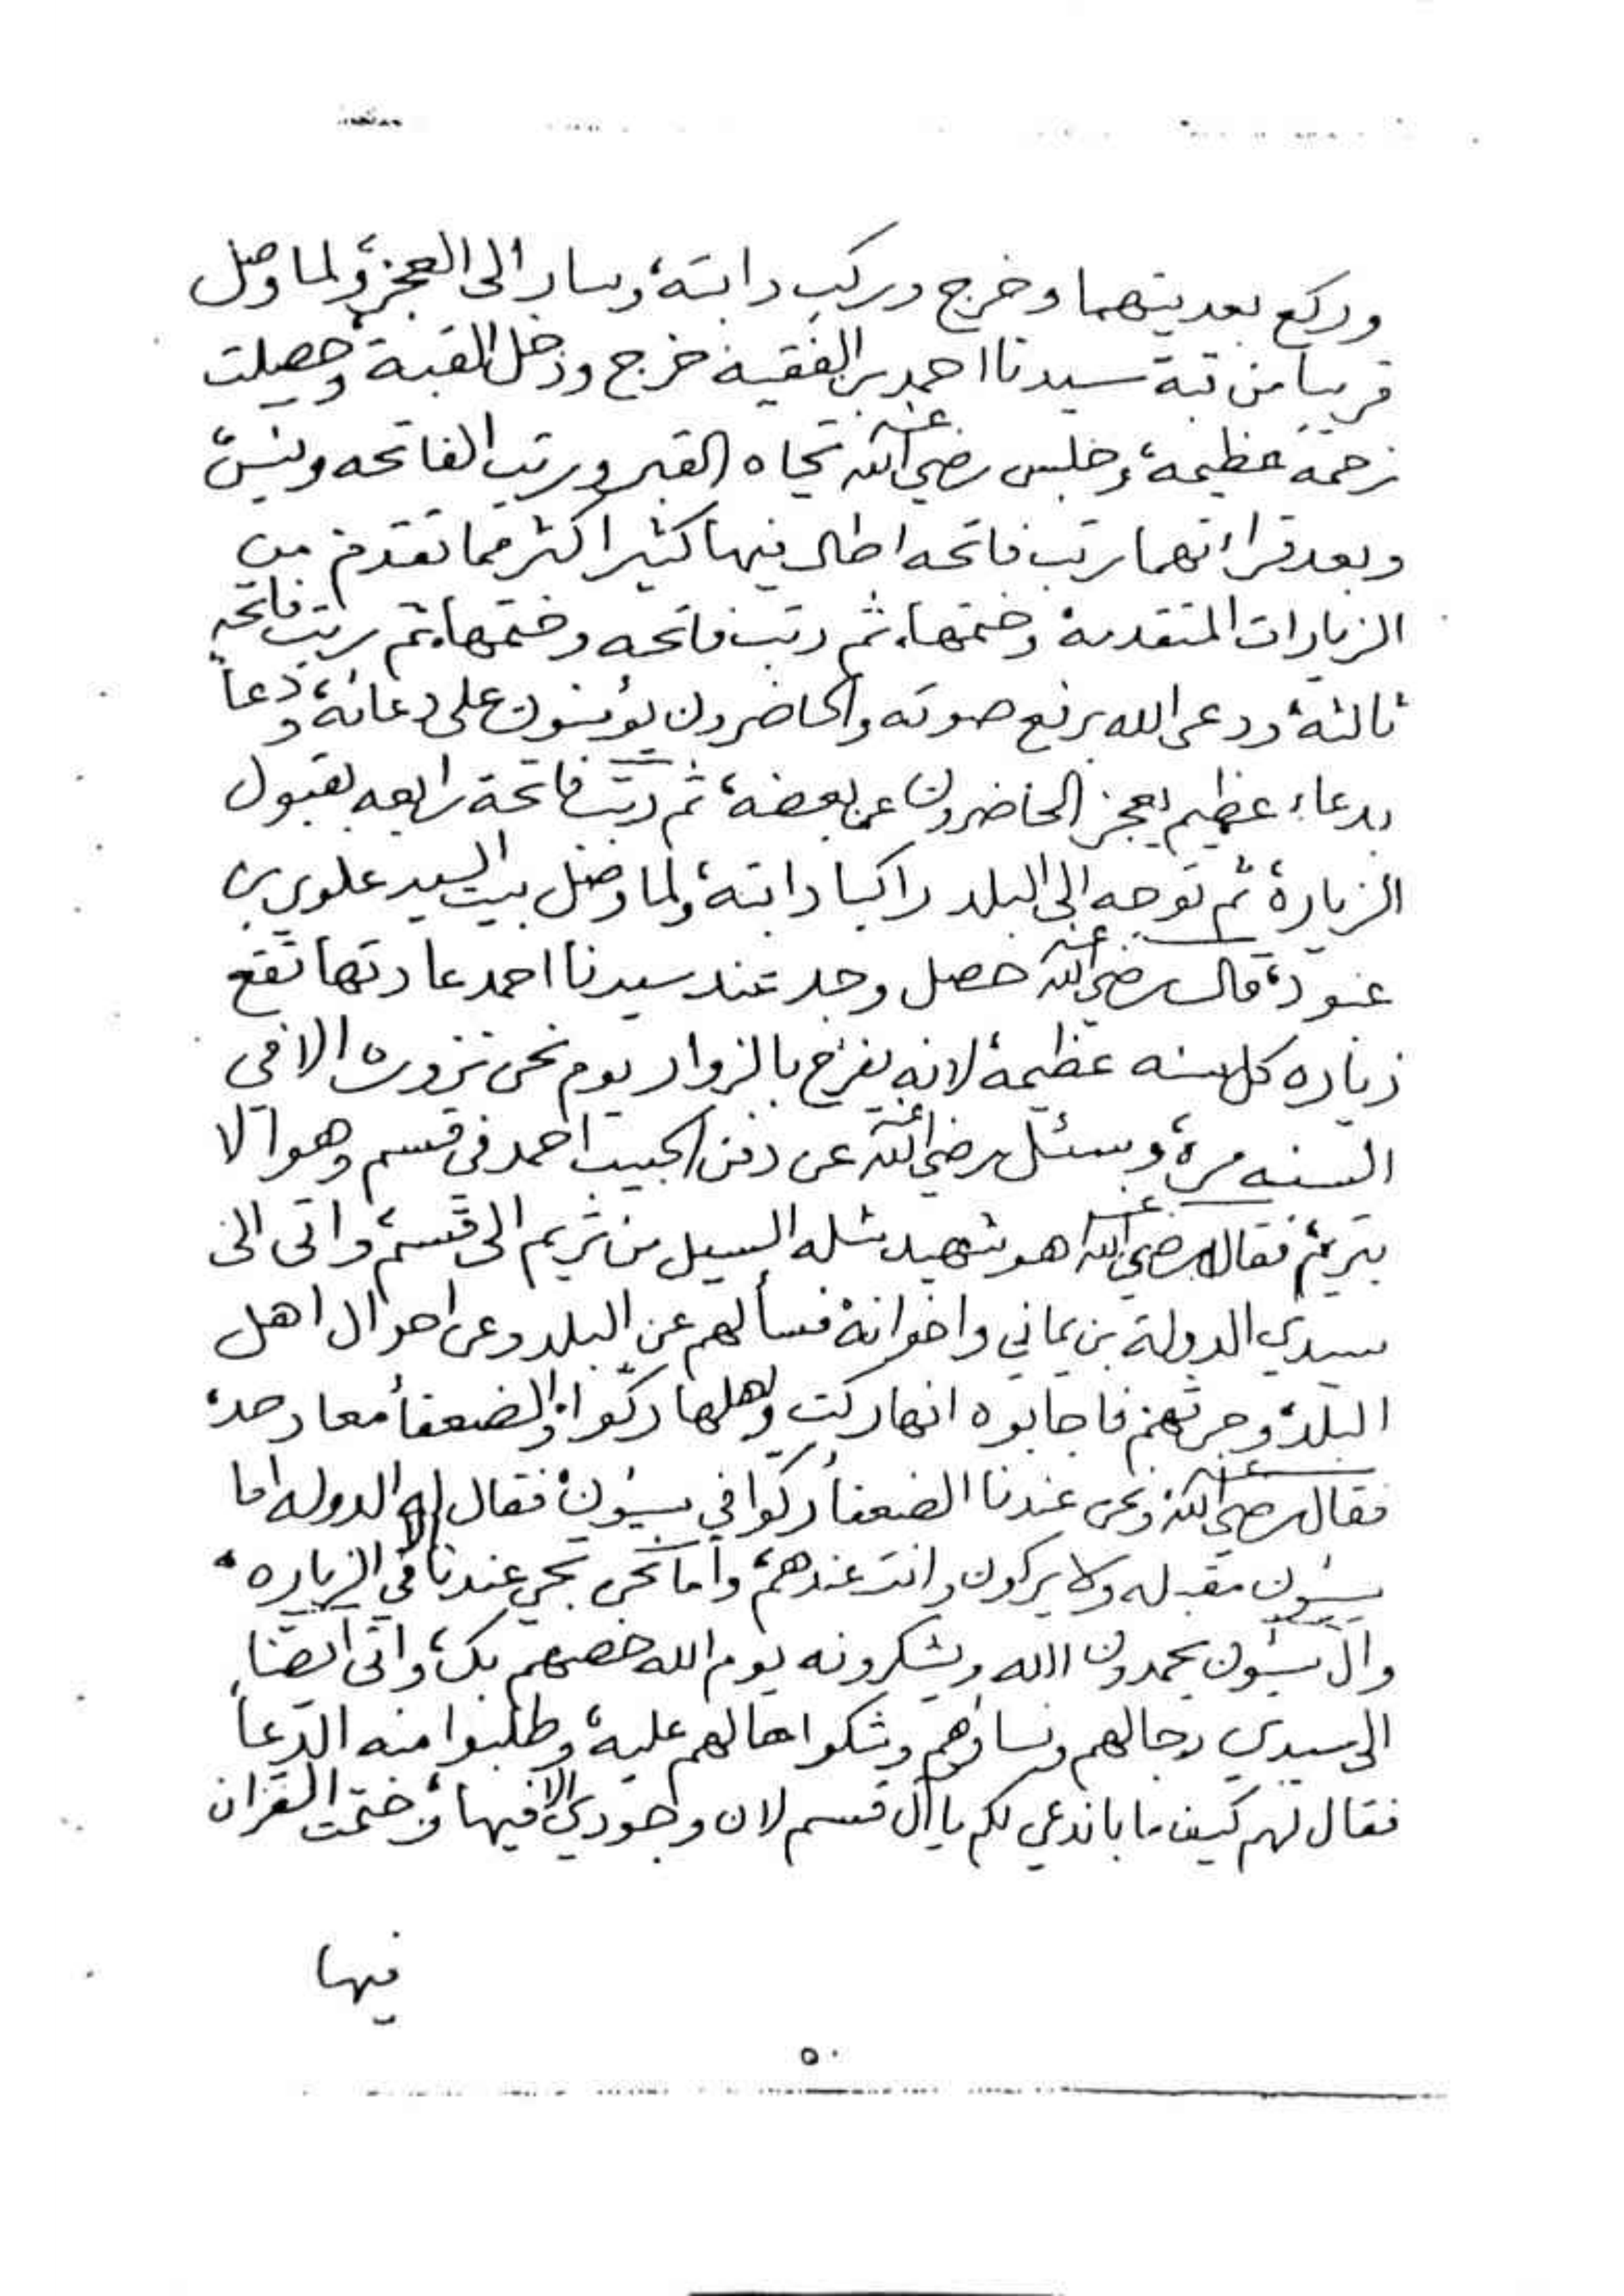 وركع بعديتهما وخرج وركب دابته، وسار الى العجز، ولما وصل
قريبا من قبة سيدنا احمد بن الفقيه خرج ودخل القبة، وحصلت
زحمة عظيمة، وجلس رضي الله عنه تجاه القبر ورتب الفاتحه ويس،
وبعد قرائتهما رتب فاتحه اطال فيها كثيرا اكثر مما تقدم من
الزيارات المتقدمة وختمها، ثم رتب فاتحه وختمها، ثم رتب فاتحه
ثالثة، ودعى الله برفع صوته والحاضرون يؤمنون على دعائه، ودعاً
بدعاء عظيم يعجز الحاضرون عن بعضه، ثم رتب فاتحة رابعه بقبول
الزيارة، ثم توجه الى البلد راكبا دابته، ولما وصل بيت السيد علوي بن
عبود، قال رضي الله عنه حصل وجد عند سيدنا احمد عادتها تقع
زياره كل سنه عظيمة لانه يفرح بالزوار يوم نحن نزوره الا في
السنه مرة، وسئل رضي الله عنه عن دفن الحبيب احمد في قسم وهو الا
بتريم، فقال رضي الله عنه هو شهيد شله السيل من تريم الى قسم، واتى الى
سيدي الدولة بن يماني واخوانه فسألهم عن البلد وعن احوال اهل
البلد، وحرثهم فاجابوه انها ركت واهلها ركّوا، والضعفأ معاد حد،
فقال رضي الله عنه ونحن عندنا الضعفأ ركوا في سيون، فقال له الدوله اما
سيون مقبله ولا يركون وانت عندهم، وأما نحن تجي عندنا الا في الزياره،
وآل سيون يحمدون الله ويشكرونه يوم الله خصهم بك، واتى ايضا
الى سيدي رجالهم ونساؤهم وشكوا حالهم عليه، وطلبوا منه الدعاً
فقال لهم كيف ما باندعي لكم يا آل قسم لان وجودي الا فيها، وختمت القران
فيها
٥٠